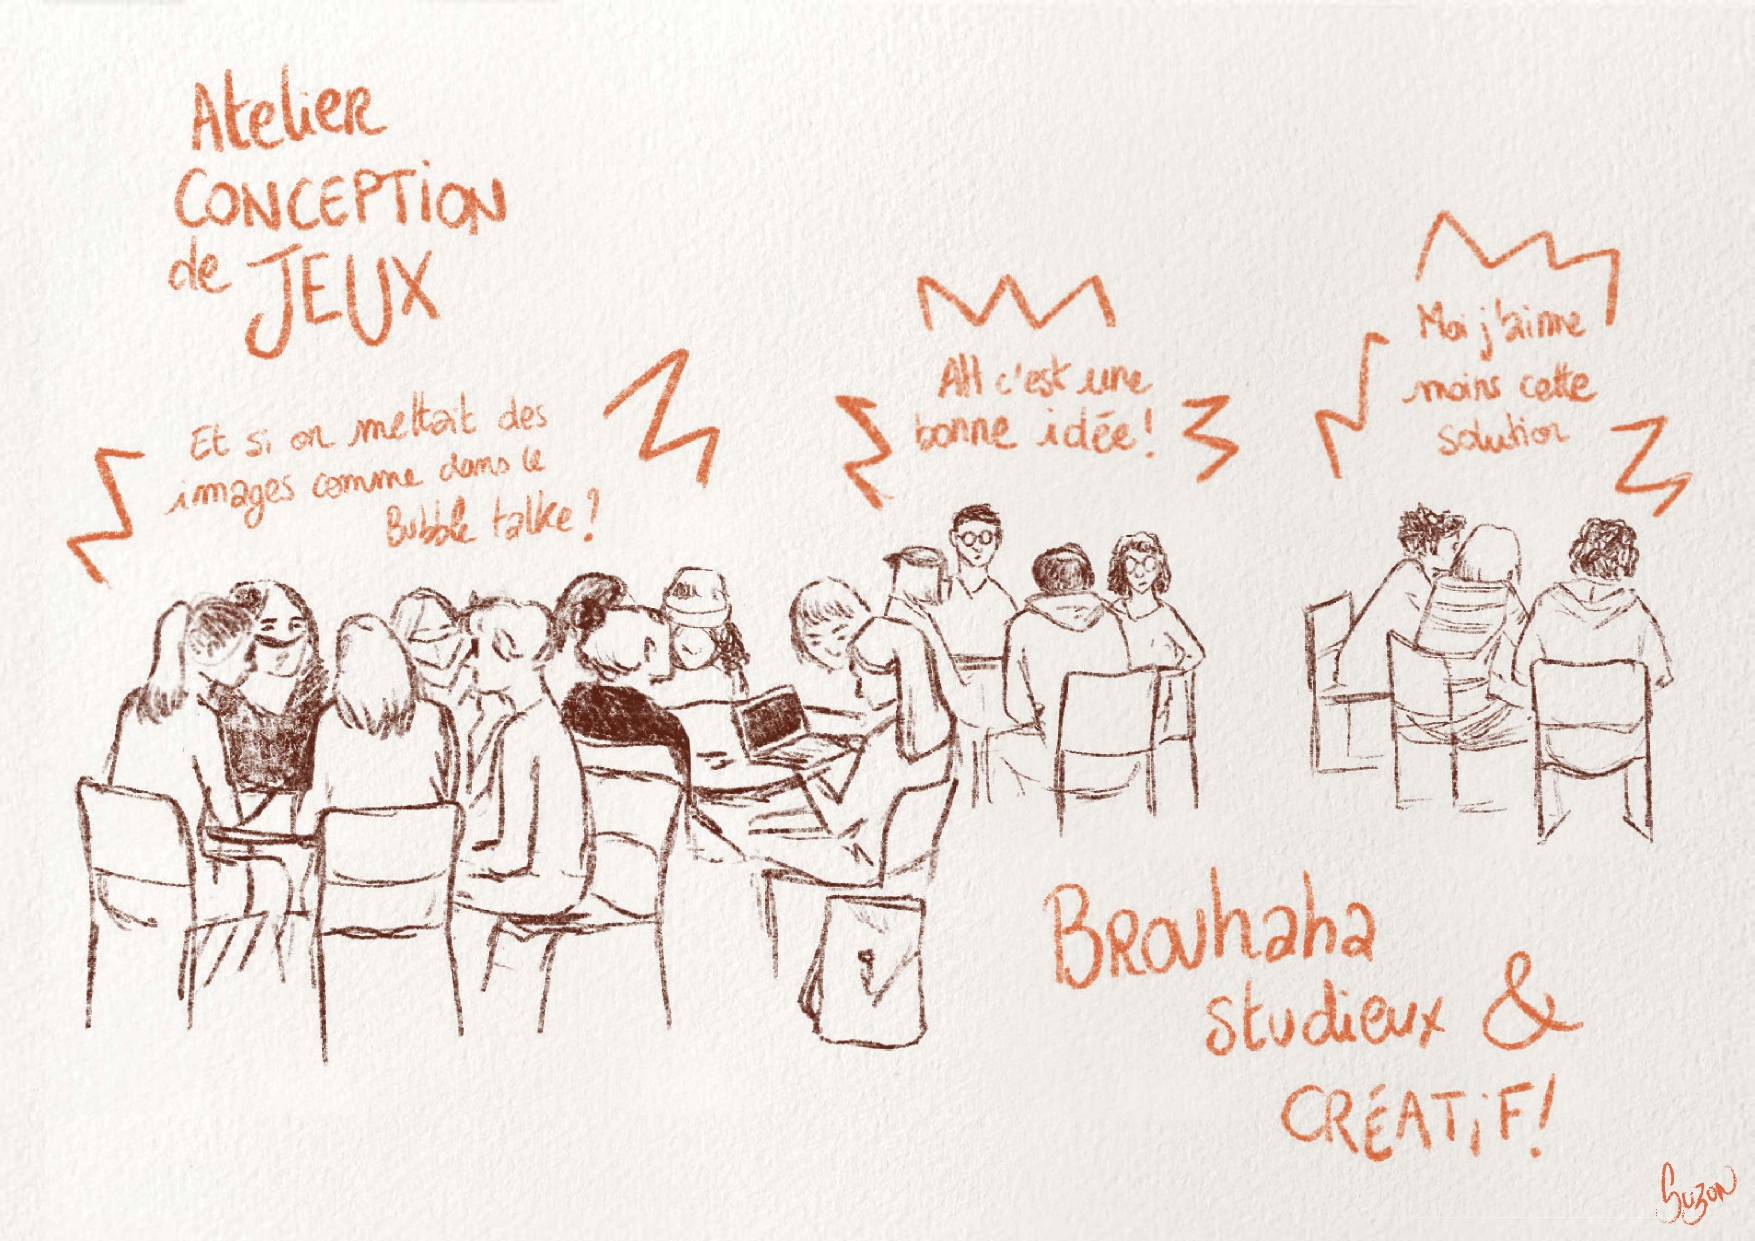 Atelier
CONCEPTION
de JEUX
Et si on mettait des
images comme dans le
Bubble talke ?
AH c'est une
bonne idée !
Moi j'aime
moins cette
solution
BROUhaha
studieux &
CRÉATiF !
Suzon